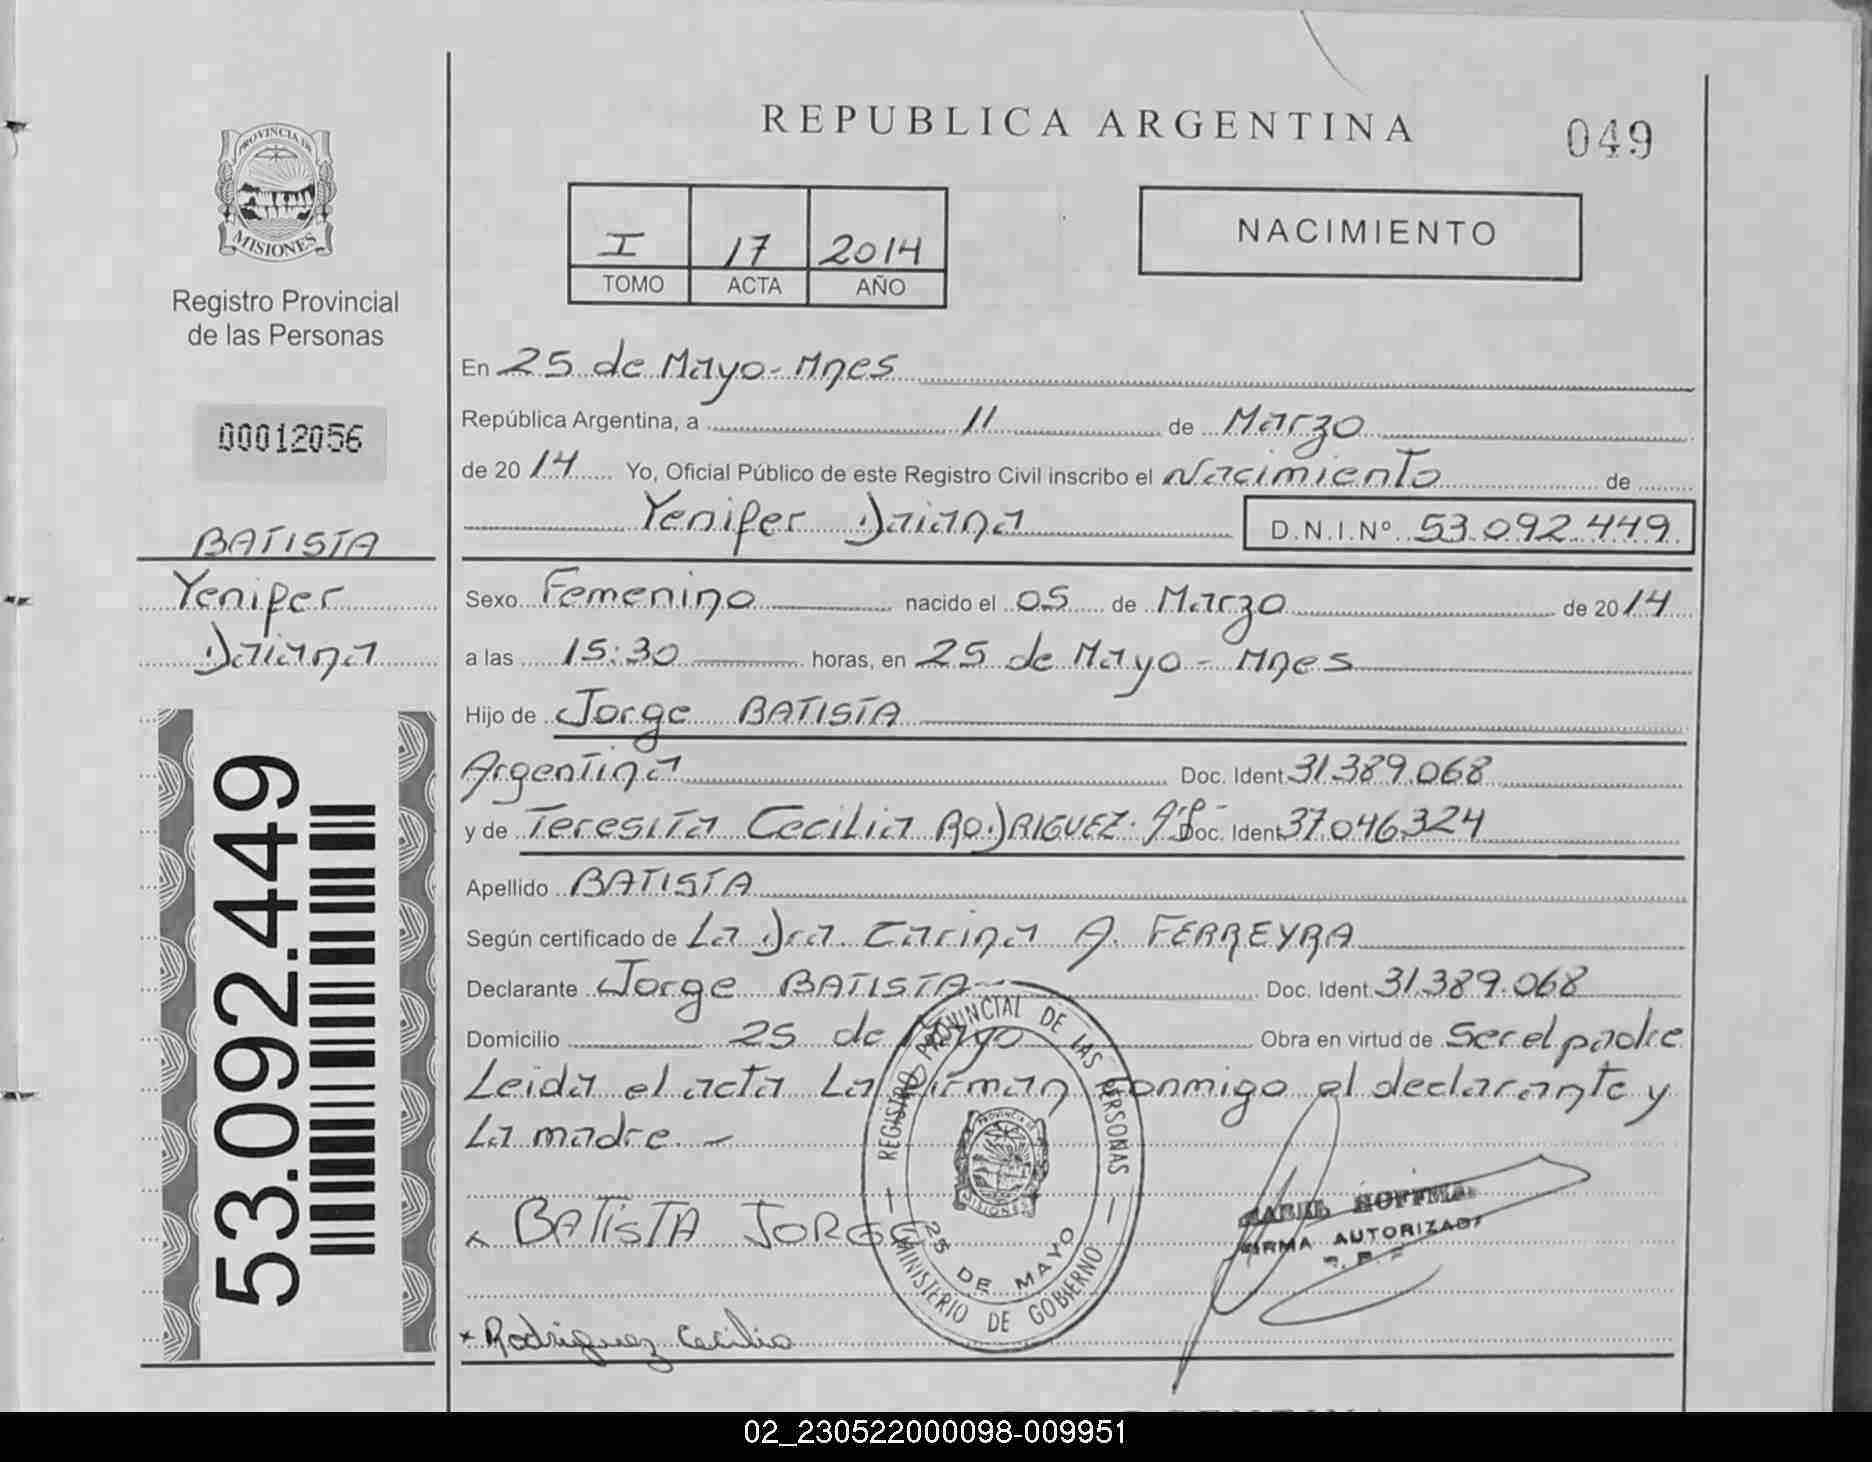 REPUBLICA ARGENTINA
049
PROVINCIA DE
MISIONES
Registro Provincial
de las Personas
00012056
BATISTA
Yenifer
Daiana
53.092.449
I 17 2014
TOMO ACTA AÑO
NACIMIENTO
En 25 de Mayo - Mnes
República Argentina, a 11 de Marzo
de 20 14 Yo, Oficial Público de este Registro Civil inscribo el Nacimiento de
Yenifer Daiana D.N.I.Nº 53.092.449
Sexo Femenino nacido el 05 de Marzo de 20 14
a las 15:30 horas, en 25 de Mayo - Mnes
Hijo de Jorge BATISTA
Argentina Doc. Ident. 31.389.068
y de Teresita Cecilia RODRIGUEZ. Doc. Ident. 37.046.324
Apellido BATISTA
Según certificado de La Dra. Carina A. FERREYRA
Declarante Jorge BATISTA Doc. Ident. 31.389.068
Domicilio 25 de Mayo Obra en virtud de Ser el padre
Leida el acta La firman conmigo el declarante y
La madre. -
BATISTA JORGE
Rodriguez Cecilia
REGISTRO PROVINCIAL DE LAS PERSONAS
PROVINCIA DE
MISIONES
25 DE MAYO
MINISTERIO DE GOBIERNO
FIRMA AUTORIZADA
02_230522000098-009951